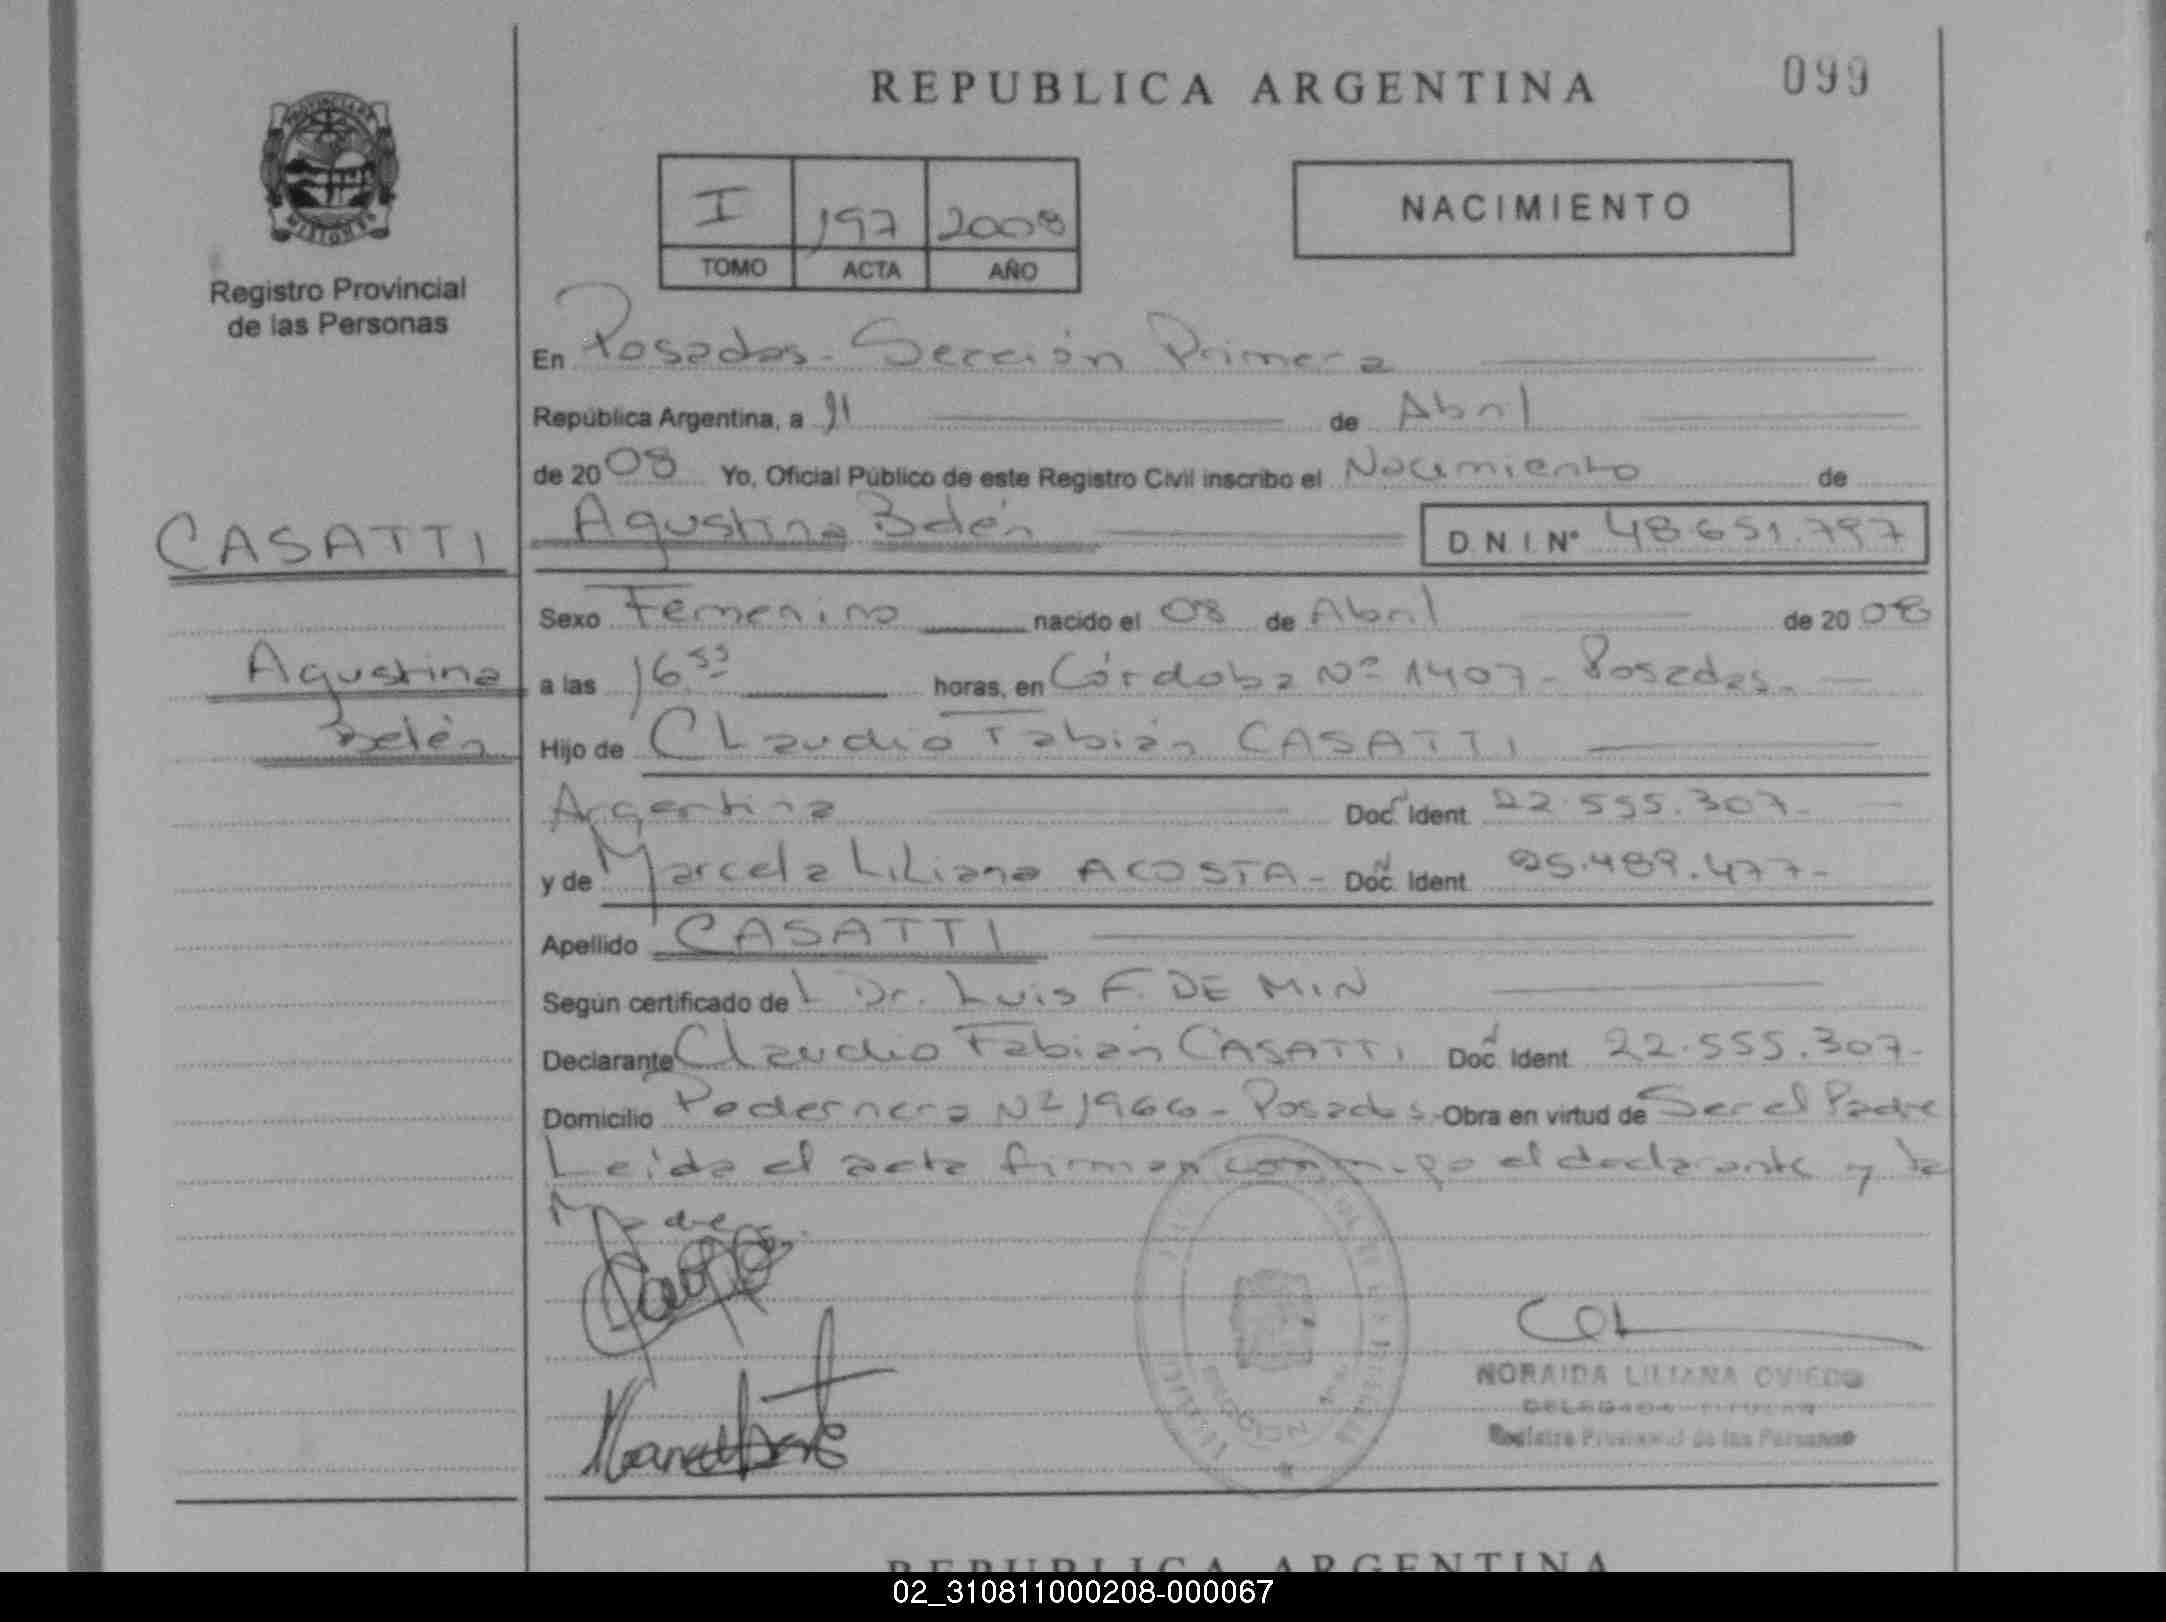 REPUBLICA ARGENTINA
099
PROVINCIA DE
MISIONES
Registro Provincial
de las Personas
I 197 2008
TOMO ACTA AÑO
NACIMIENTO
En Posadas - Sección Primera
República Argentina, a 11 de Abril
de 2008 Yo, Oficial Público de este Registro Civil inscribo el Nacimiento de
CASATTI
Agustina Belén
D.N.I. Nº 48.651.797
Sexo Femenino nacido el 08 de Abril de 2008
Agustina
a las 16 55 horas, en Córdoba Nº 1407 - Posadas.
Belén
Hijo de Claudio Fabián CASATTI
Argentina Doc. Ident. 22.555.307-
y de Marcela Liliana ACOSTA - Doc. Ident. 25.489.477-
Apellido CASATTI
Según certificado del Dr. Luis F. DE MIN
Declarante Claudio Fabián CASATTI Doc. Ident. 22.555.307-
Domicilio Pedernera Nº 1966 - Posadas - Obra en virtud de Ser el Padre
Leida el acta firman conmigo el declarante y la
Madre.
NORAIDA LILIANA OVIEDO
DELEGADA TITULAR
Registro Provincial de las Personas
REPUBLICA ARGENTINA
02_310811000208-000067